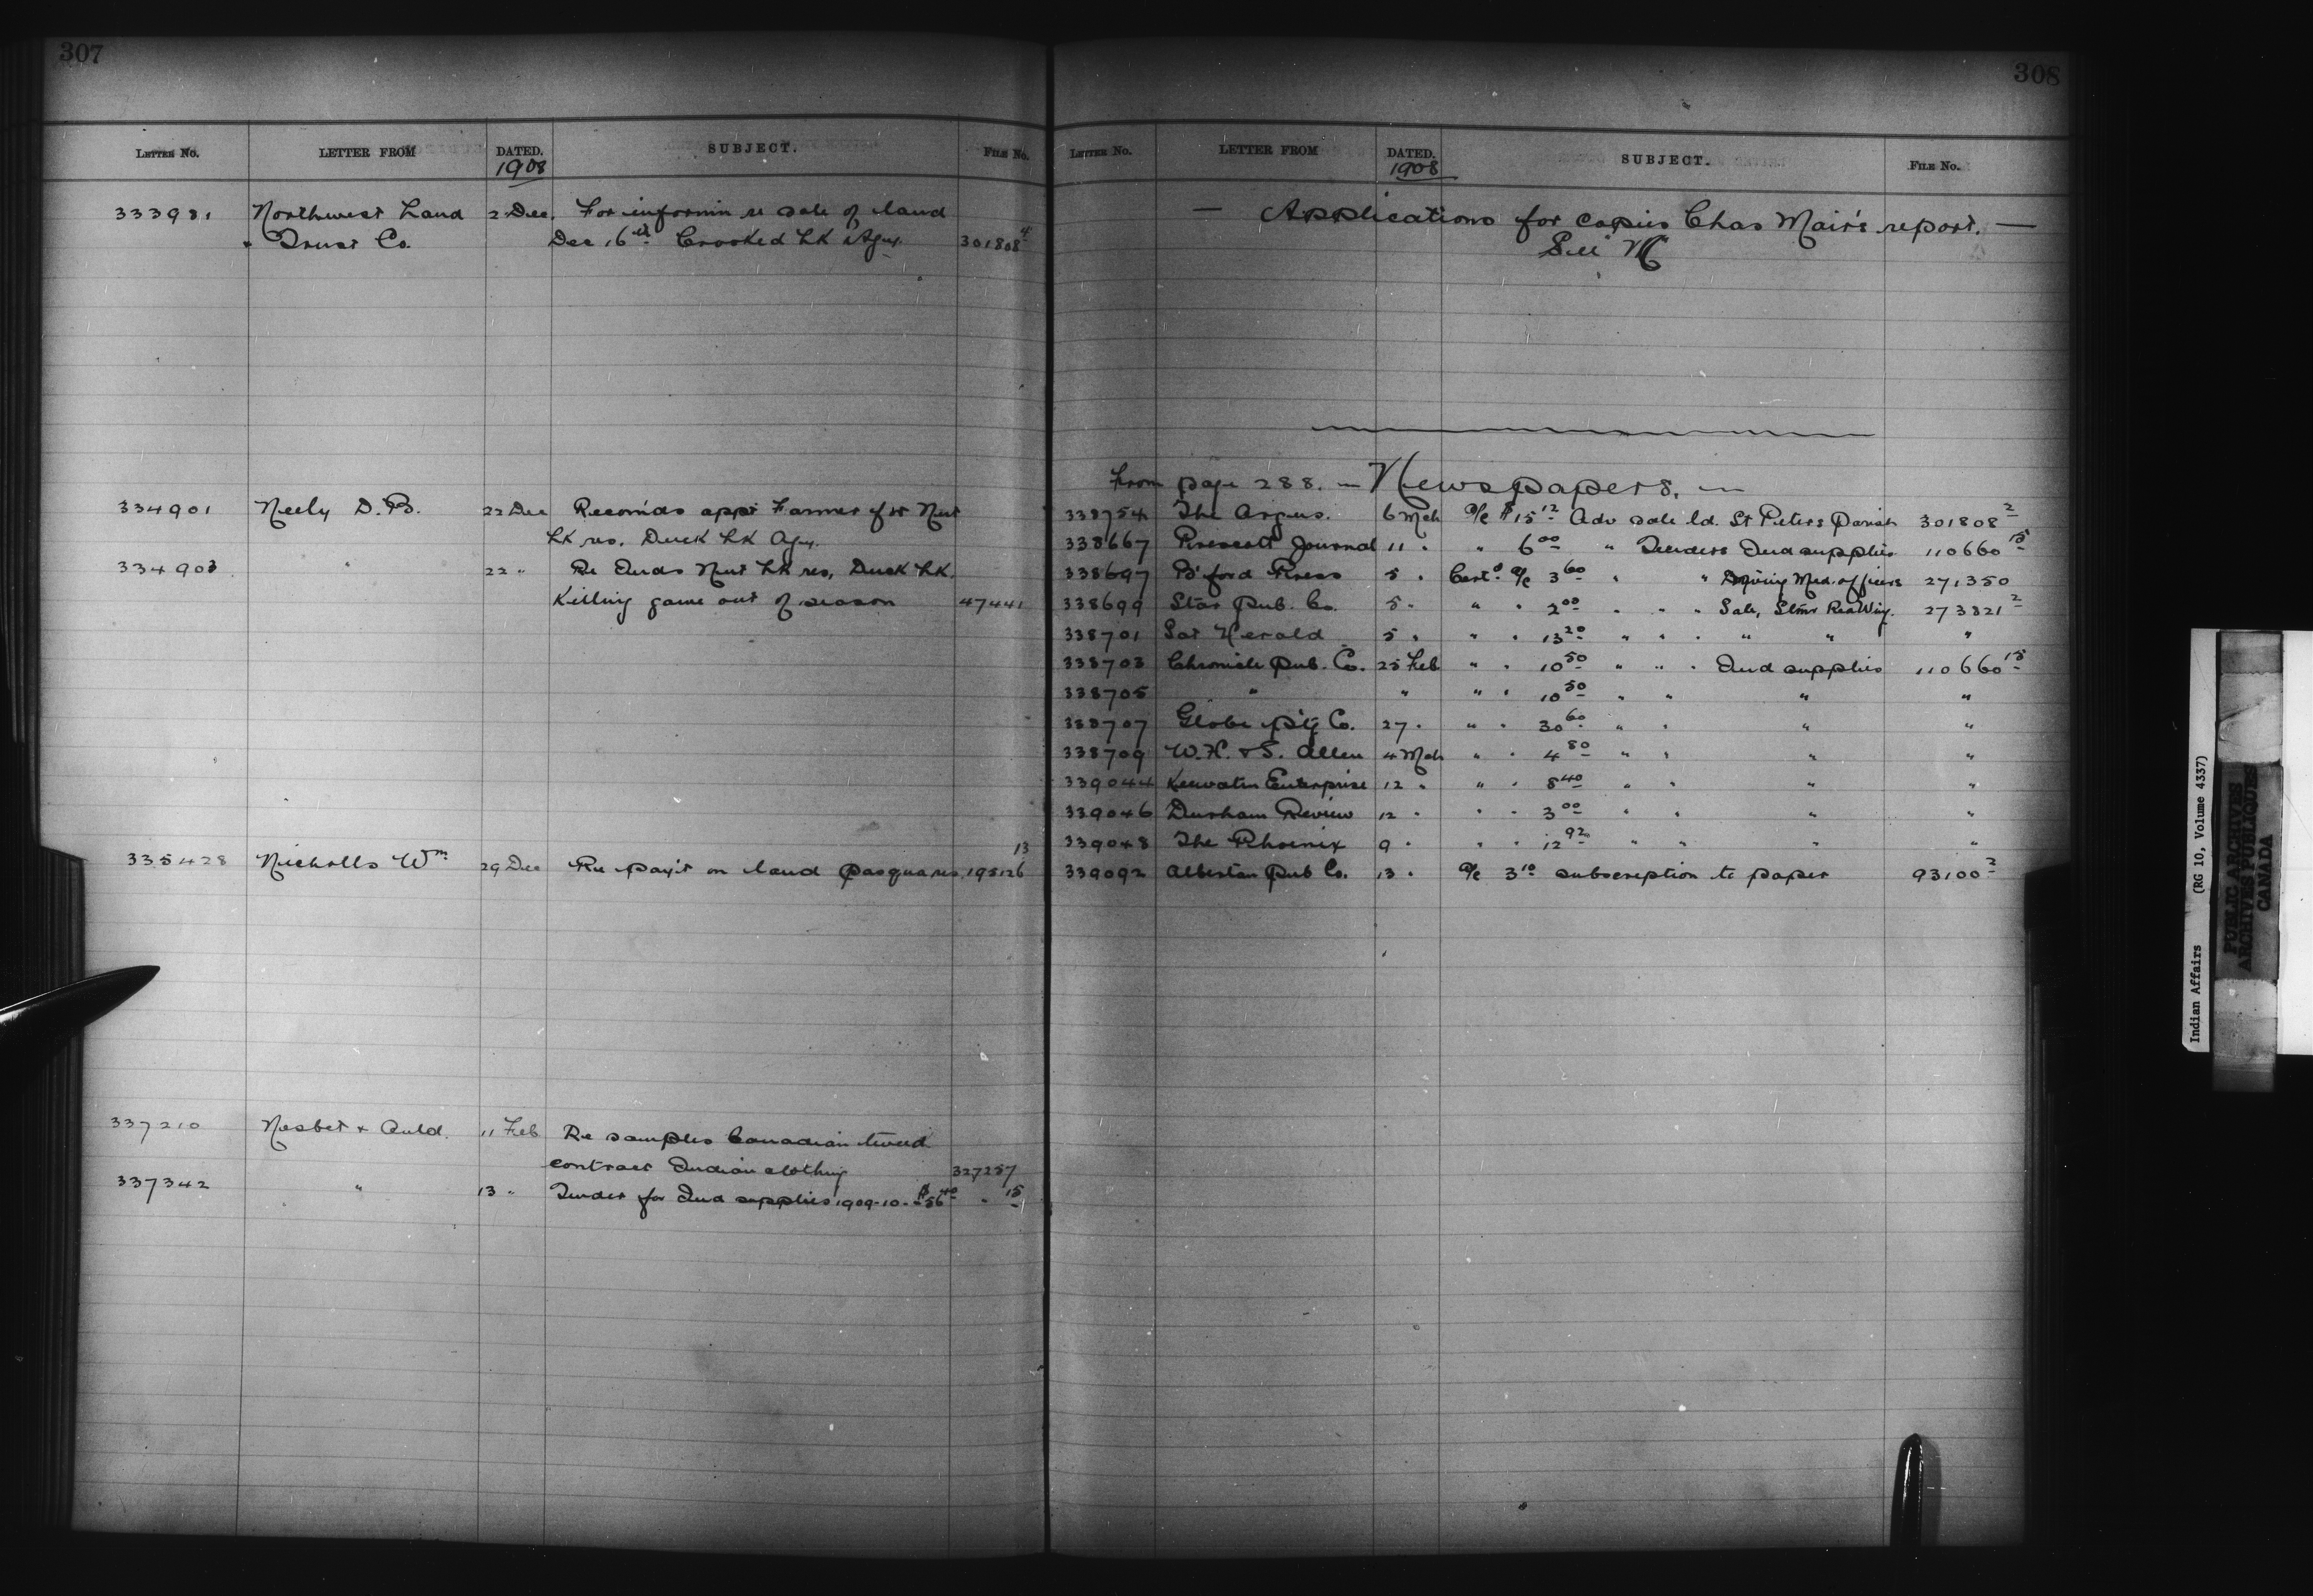 307
LETTER NO. LETTER FROM DATED. SUBJECT. FILE No.
1908
333981 Northwest Land 2 Dec. For informin re sale of land
" Trust Co. Dec 16th Crooked Lk Agy. 301808 4
334901 Neely D.B. 22 Dec Recom'ds appt Farmer for Nut
Lk res. Duck Lk Agy.
334903 " 22 " Re Inds Nut Lk res, Duck Lk.
Killing game out of season 47441
335428 Nicholls Wm 29 Dec Re pay't on land Pasqua res. 195126 13
337210 Nesbet & Auld. 11 Feb Re samples Canadian tweed
contract Indian clothing 327257
337342 " 13 " Tender for Ind supplies 1909-10. $56 40 " 15
308
LETTER NO. LETTER FROM DATED. SUBJECT. FILE No.
1908
— Applications for copies Chas Mair's report. —
See M
From page 288. — Newspapers. —
338754 The Argus. 6 Mch a/c $15 12 Adv sale ld. St Peters Parish 301808 2
338667 Prescott Journal 11 " " 6 00 " Tenders Ind supplies 110660 15
338697 B'ford Press 5 " Cert'd a/c 3 60 " " Med. officers 271350
338699 Star Pub. Co. 5 " " " 2 00 " " " Sale, Stmr Redwing. 273821 2
338701 Sat Herald 5 " " " 13 20 " " " " " "
338703 Chronicle Pub. Co. 25 Feb " " 10 50 " " " Ind supplies 110660 15
338705 " " " " 10 50 " " " "
338707 Globe P't'g Co. 27 " " " 30 60 " " " "
338709 W.H. & S. Allen 4 Mch " " 4 80 " " " "
339044 Keewatin Enterprise 12 " " " 8 40 " " " "
339046 Durham Review 12 " " " 3 00 " " " "
339048 The Phoenix 9 " " " 12 92 " " " "
339092 Albertan Pub Co. 13 " a/c 3 10 subscription to paper 93100 2
Indian Affairs (RG 10, Volume 4337)
PUBLIC ARCHIVES
ARCHIVES PUBLIQUES
CANADA